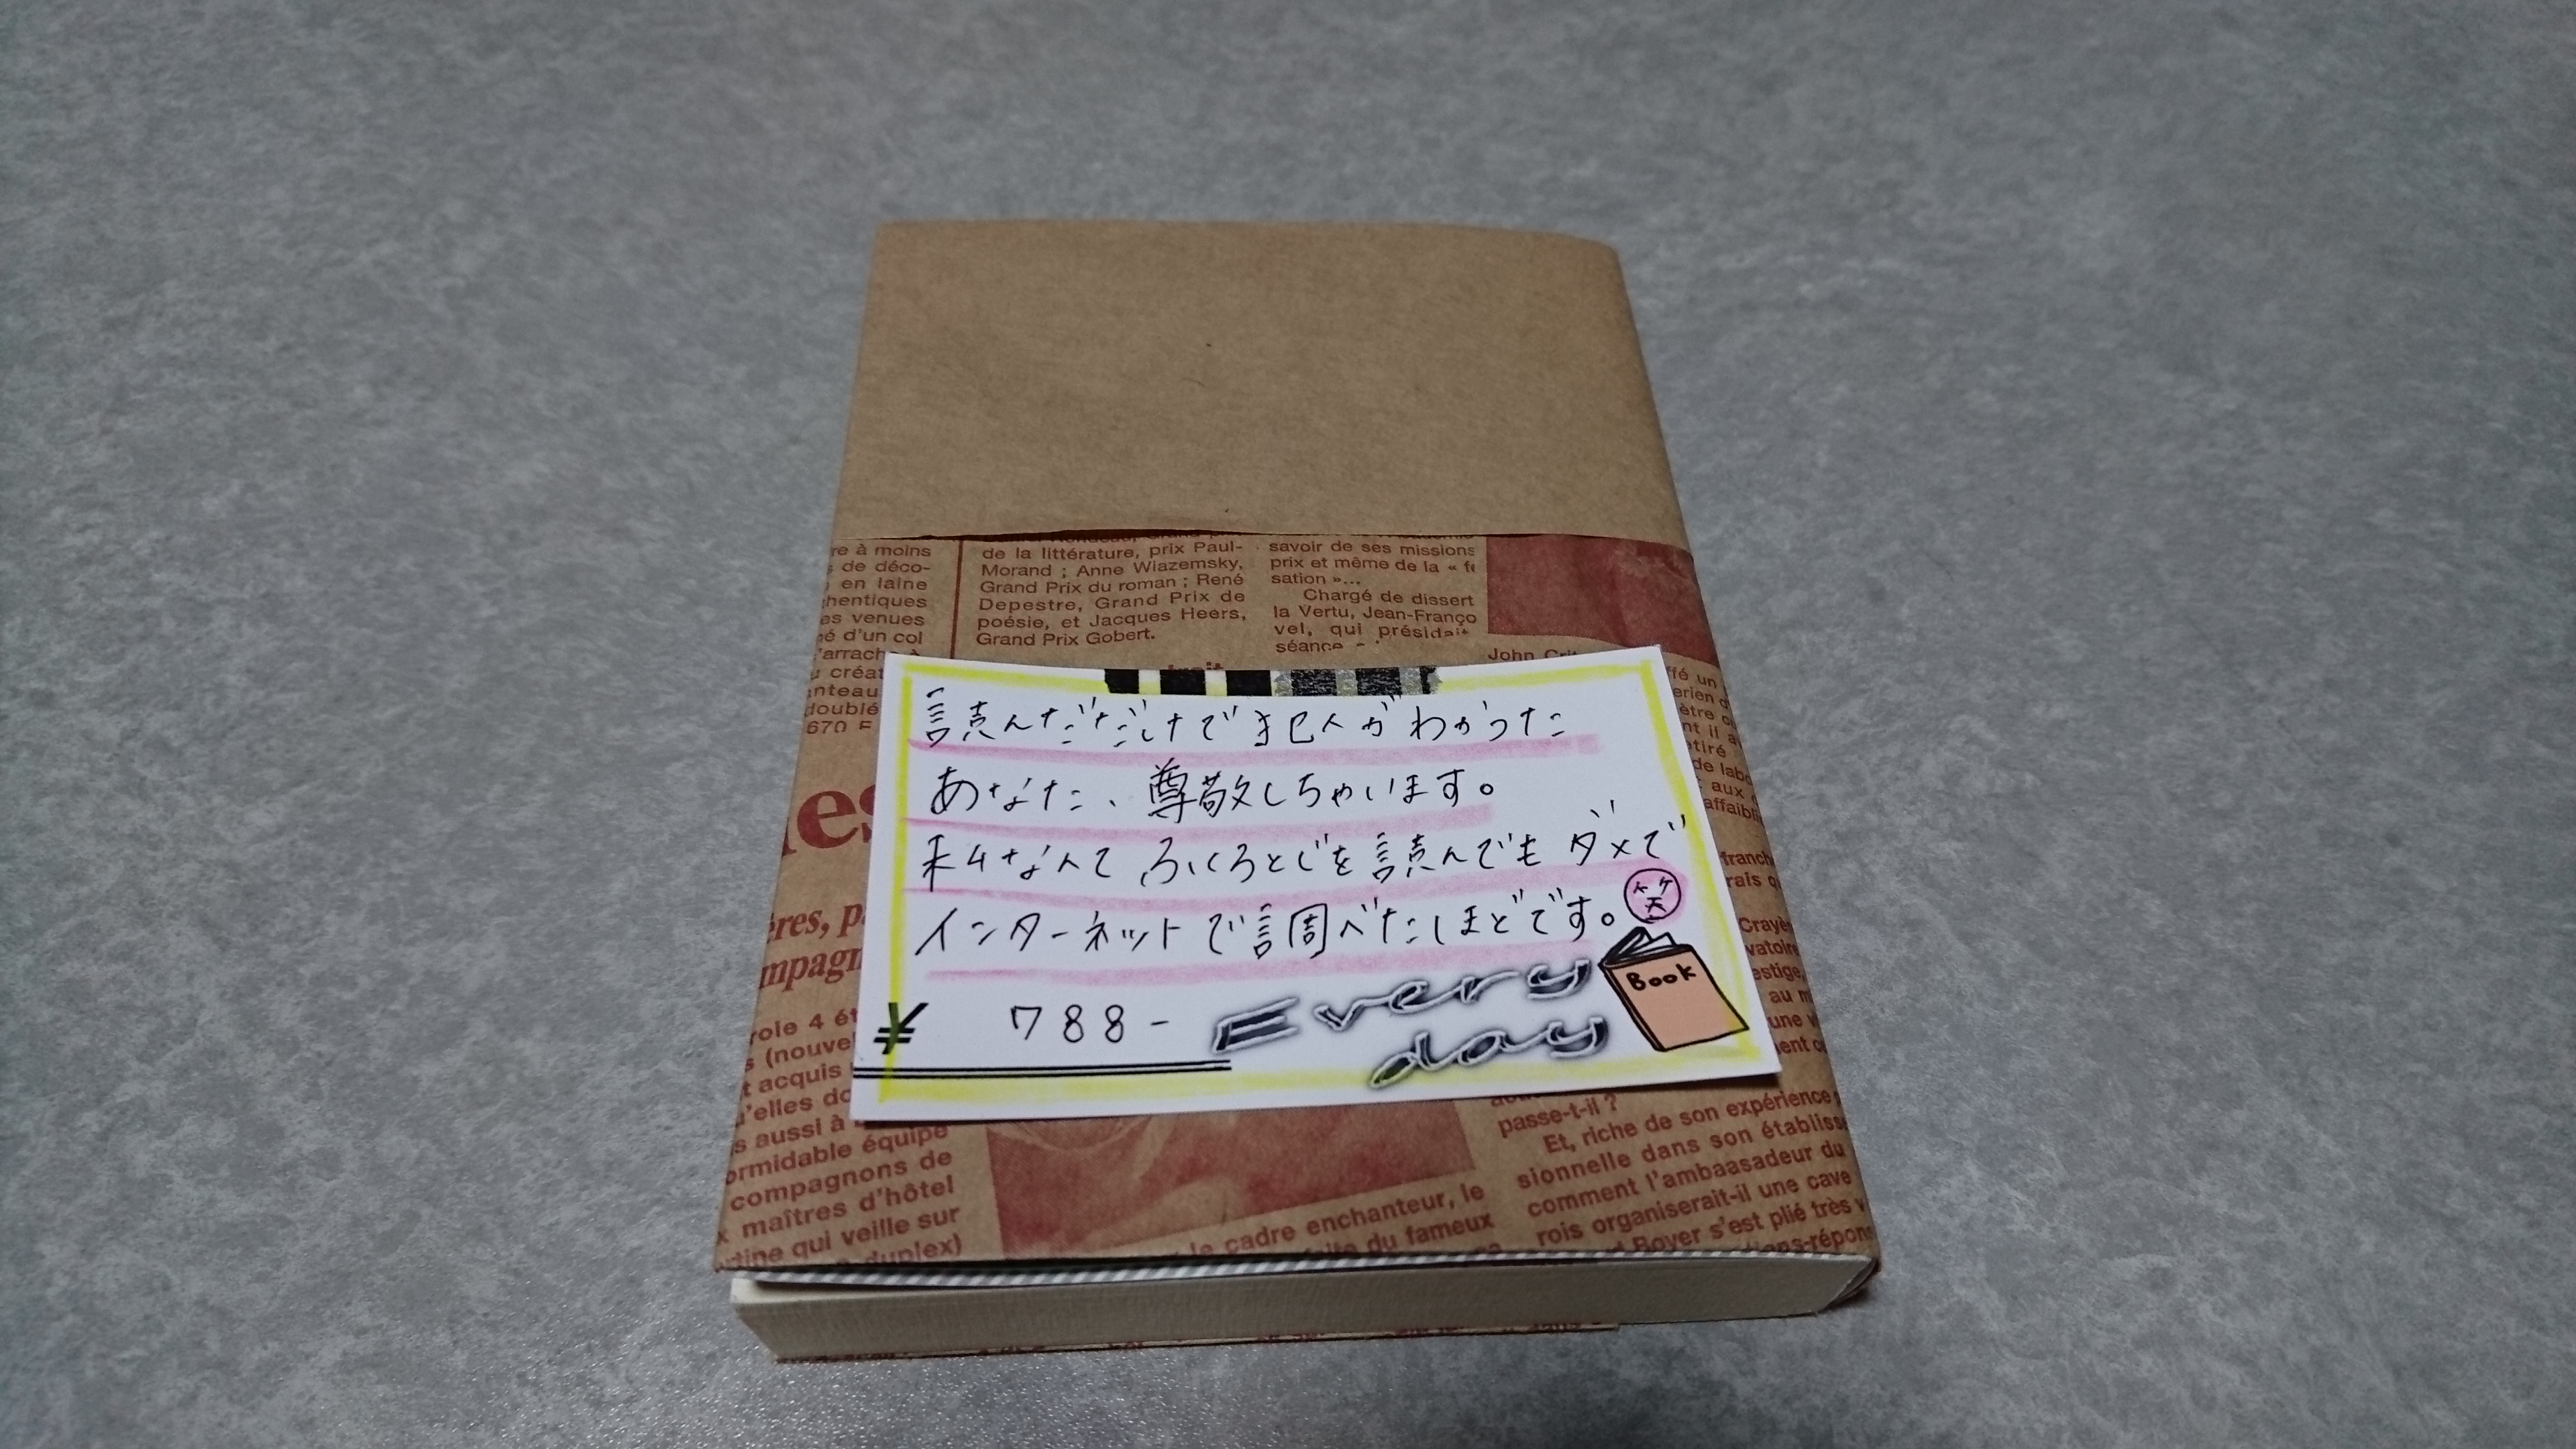 re à moins
de déco-
en laine
hentiques
es venues
é d'un col
'arrach
créat
nteau
doublé
670 F
de la littérature, prix Paul-
Morand ; Anne Wiazemsky,
Grand Prix du roman ; René
Depestre, Grand Prix de
poésie, et Jacques Heers,
Grand Prix Gobert.
savoir de ses missions
prix et même de la «
sation »...
Chargé de dissert
la Vertu, Jean-Franço
vel, qui présidait
séance
John
読んだだけで犯人がわかった
あなた、尊敬しちゃいます。
私なんてふくろとじを読んでもダメで
インターネットで調べたほどです。笑
¥ 788-
Every
day
Book
es
ères, p
mpagn
role 4 ét
s (nouvel
t acquis
u'elles do
s aussi à
ormidable équipe
compagnons de
x maîtres d'hôtel
qui veille sur
duplex)
le cadre enchanteur, le
du fameux
passe-t-il ?
Et, riche de son expérience
sionnelle dans son établiss
comment l'ambaasadeur du
rois organiserait-il une cave
Boyer s'est plié très v
ons-répon
ffé un
erien d
ètre
nt il a
etiré
de labo
aux
affaibl
franch
rais q
Crayè
vatoire
estige,
au m
une v
ent c